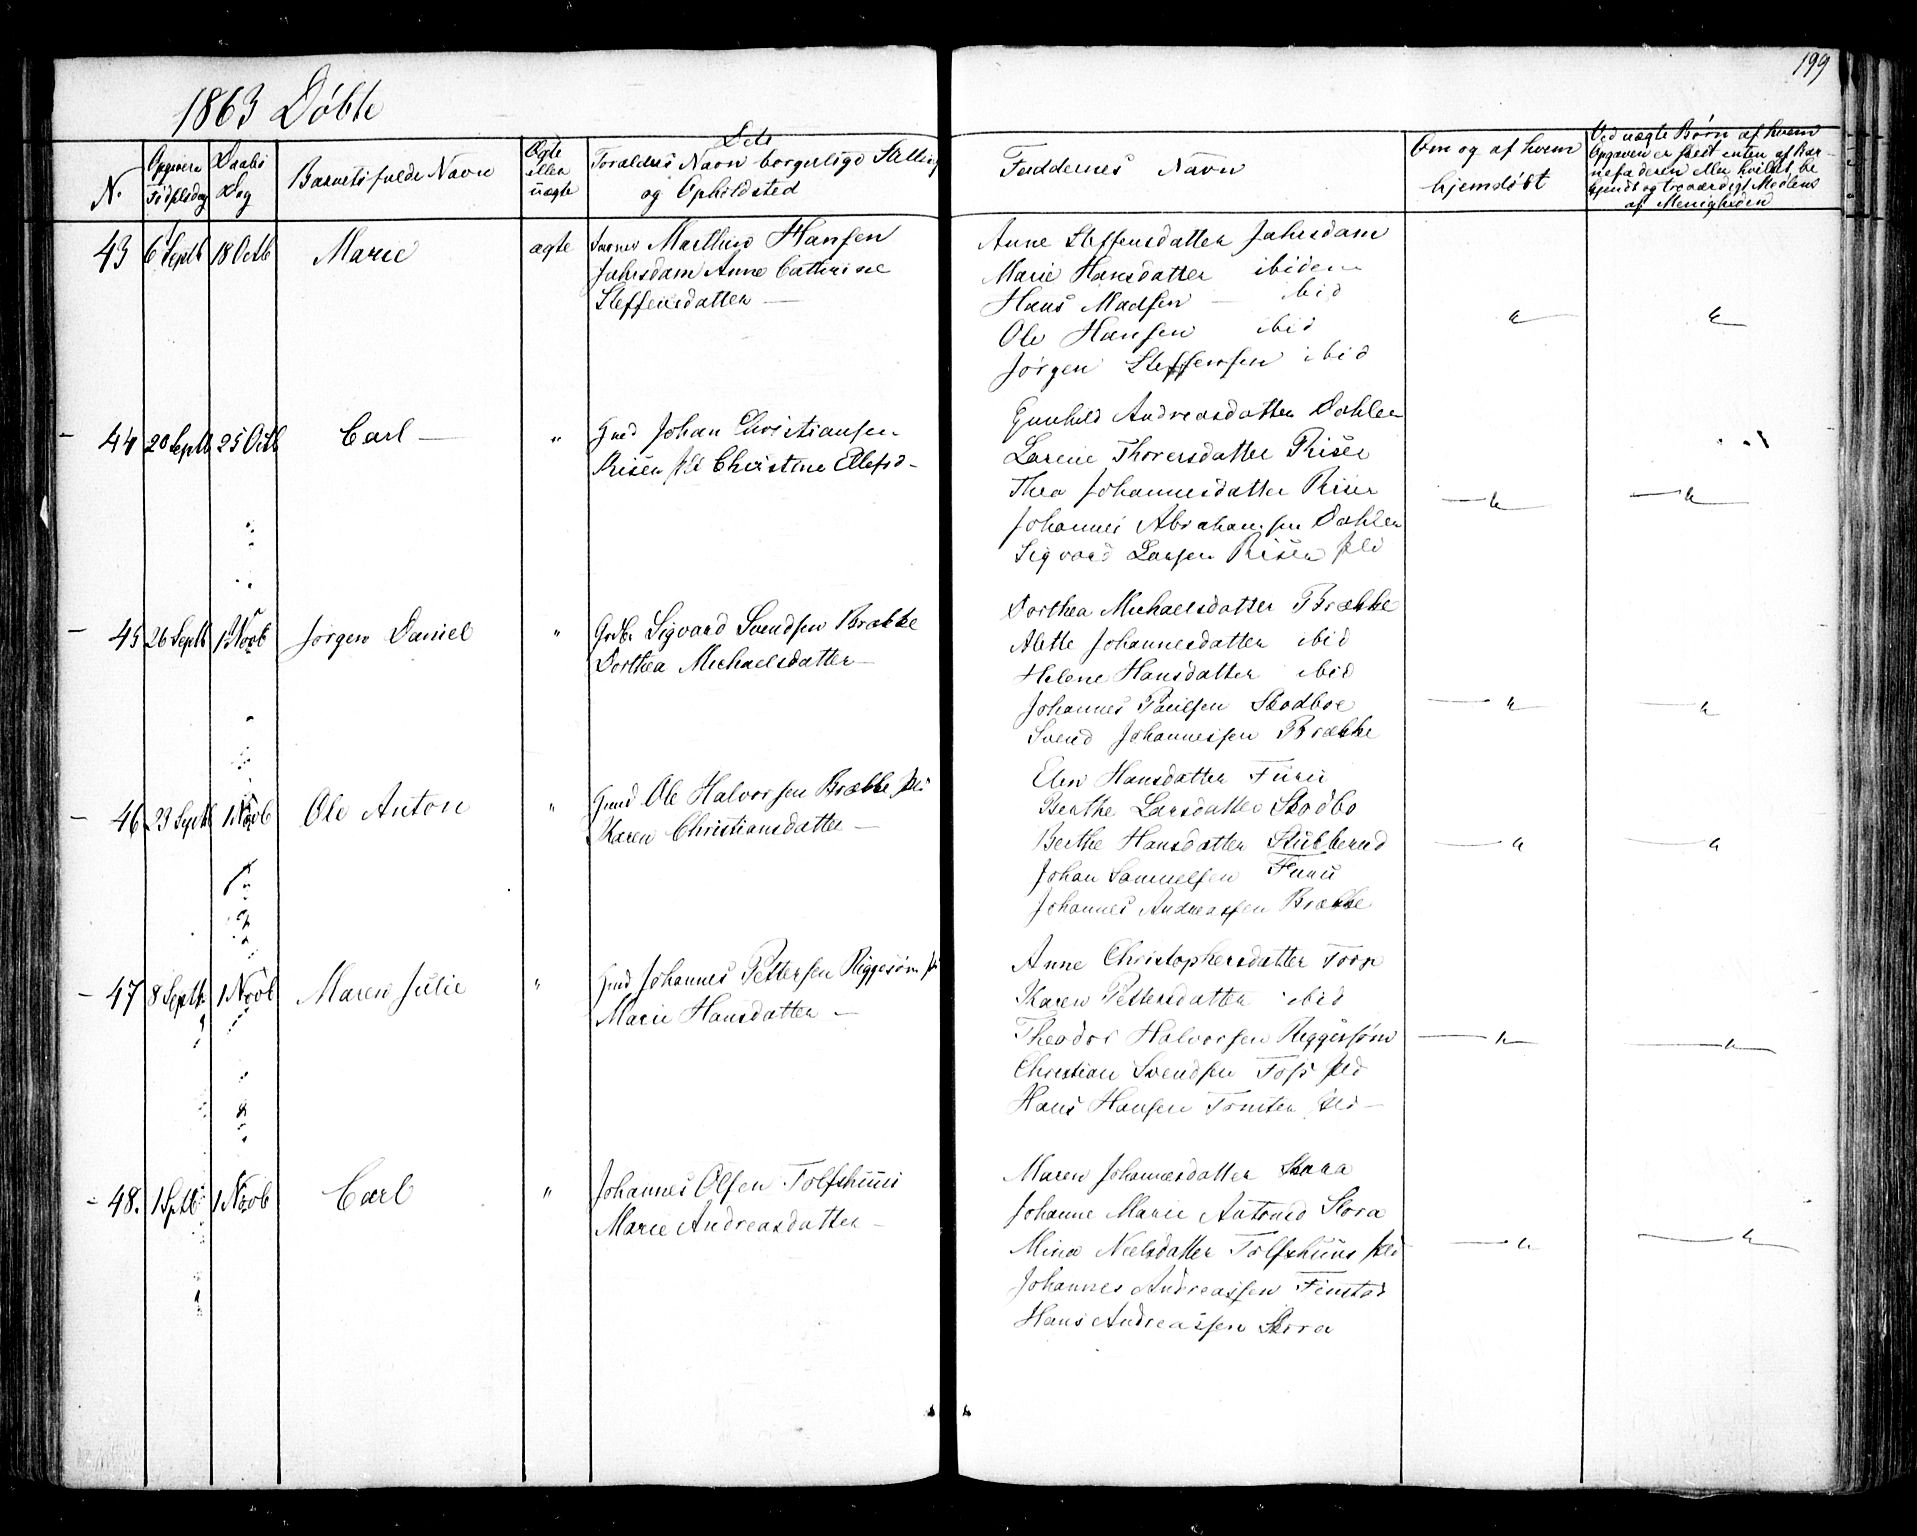 199
1863 Døbte
N.
Opgivne Fødselsdag
Daabs Dag
Barnets fulde Navn
Ægte eller uægte
Dets Forældres Navn borgerlige Stilling og Opholdsted
Faddernes Navn
Om og af hvem hjemdøbt
Ved uægte Børn af hvem Opgaven er skeet enten af Barnefaderen eller hvilket bekjendt og troværdigt Medlem af Menigheden
43 6 Septb 18 Octb Marie ægte Marthin Hansen
Jahrsdam Anne Cathrine
Steffensdatter —
Anne Steffensdatter Jahrsdam
Marie Hansdatter ibidem
Hans Madsen — ibid
Ole Hansen ibid
Jørgen Steffensen ibid
44 20 Septb 25 Octb Carl — " Gmd Johan Christiansen
Risen pld Christine Ellefsd-
Gunhild Andreasdatter Dahlen
Larene Thorersdatter Risen
Thea Johannesdatter Risen
Johannes Abrahamsen Dahlen
Sigvard Larsen Risen pld
45 26 Septb 1 Novb Jørgen Daniel " Grdbr Sigvard Svendsen Brække
Dorthea Michaelsdatter —
Dorthea Michaelsdatter Brække
Alette Johannesdatter ibid
Helene Hansdatter ibid
Johannes Paulsen Skodboe
Svend Johannessen Brække
46 23 Septb 1 Novb Ole Anton " Gmd Ole Halvorsen Brække pld
Karen Christiansdatter —
Elen Hansdatter Furu
Berthe Larsdatter Skodbo
Berthe Hansdatter Stubberud
Johan Samuelsen Furu
Johannes Andreassen Brække
47 8 Septb 1 Novb Maren Julie " Gmd Johannes Pettersen Riggesøm pld
Marie Hansdatter —
Anne Christophersdatter Torp
Karen Pettersdatter ibid
Theodor Halvorsen Riggesøm
Christian Svendsen Foss pld
Hans Hansen Tomter pld —
48. 1 Septb 1 Novb Carl " Johannes Olsen Tolfshuus
Marie Andreasdatter —
Maren Johannesdatter Skara
Johanne Marie Skora
Mina Nielsdatter Tolfshuus pld
Johannes Andreassen Finstad
Hans Andreassen Skora